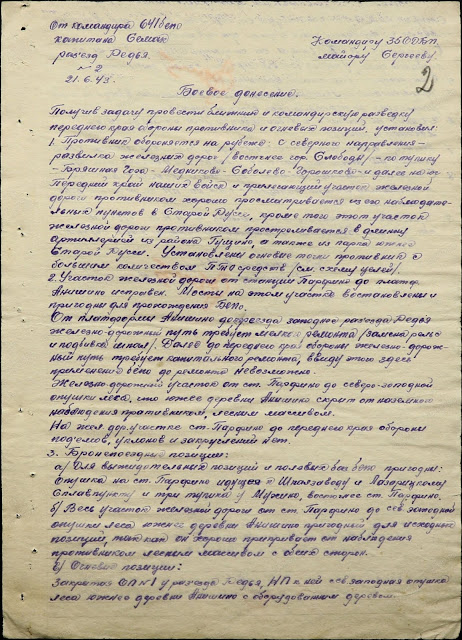 От командира 641 бепо
капитана Семак
Командиру 35 ОДБП
майору Сергееву
раз'езд Редья.
№ 2
21.6.43.
2
Боевое донесение.
Получив задачу провести ближний и командирскую разведку
переднего края обороны противника и огневых позиций, установил:
1. Противник обороняется на рубеже: с северного направления-
развилка железных дорог / восточнее гор. Слободы / - по тупику
-Горячая Гора- Медниково- Соболево- и далее на юг.
Передний край наших войск и прилегающий участок железной
дороги противником хорошо просматривается из его наблюдате-
льных пунктов в Старой Руссе, кроме того этот участок
железной дороги противником простреливается в длинну
артиллерией из района Гущино, а также из парка южнее
Старой Руссы. Установлены основные точки противника с
большим количеством ПТО средств / см. схему целей /.
2. Участок железной дороги от станции Парфино до платф.
Анишино исправен. Мосты на этом участке востановлены и
пригодны для прохождения БЕПО.
От платформы Анишино до раз'езда Редья
железно-дорожный путь требует мелкого ремонта / замена рельс
и подбивка шпал /. Далее до переднего края обороны железно-дорож-
ный путь требует капитального ремонта, ввиду этого здесь
применение бепо до ремонта невозможно.
Железно-дорожный участок от ст. Парфино до северо-западной
опушки леса, что южнее деревни Анишино скрыт от наземного
наблюдения противником, лесным массивом.
На жел. дор. участке ст. Парфино до переднего края обороны
под'емов, уклонов и закруглений нет.
3. Бронепоездные позиции:
а) Для выжидательных позиций и половых баз бепо пригодны:
ст. Парфино идущая к Шпалзаводу и Лазарицкому
Сплавпункту и три тупика у Мухино, восточнее ст. Парфино.
б) Весь участок железной дороги от ст. Парфино до сев. западной
опушки леса южнее деревни Анишино пригодный для исходных
позиций, так как он хорошо прикрывает от наблюдения
противником лесным массивом с обеих сторон.
в) Огневые позиции:
Закрытая ОП №1 у раз'езда Редья, НП к ней сев. западная опушка
леса южнее деревни Анишино с оборудованным деревом.